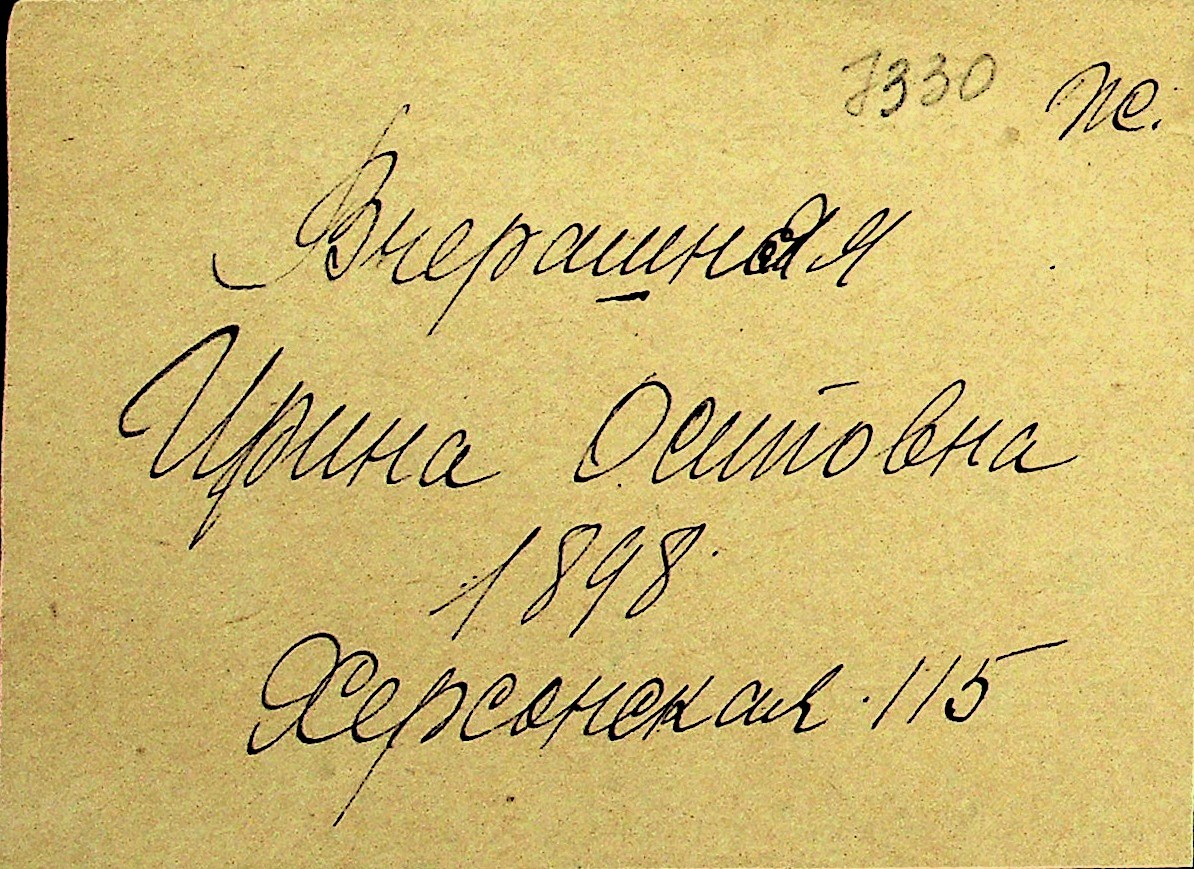 7330 ж.
Вчерашная
Ирина Осиповна
1898
Херсонская 115